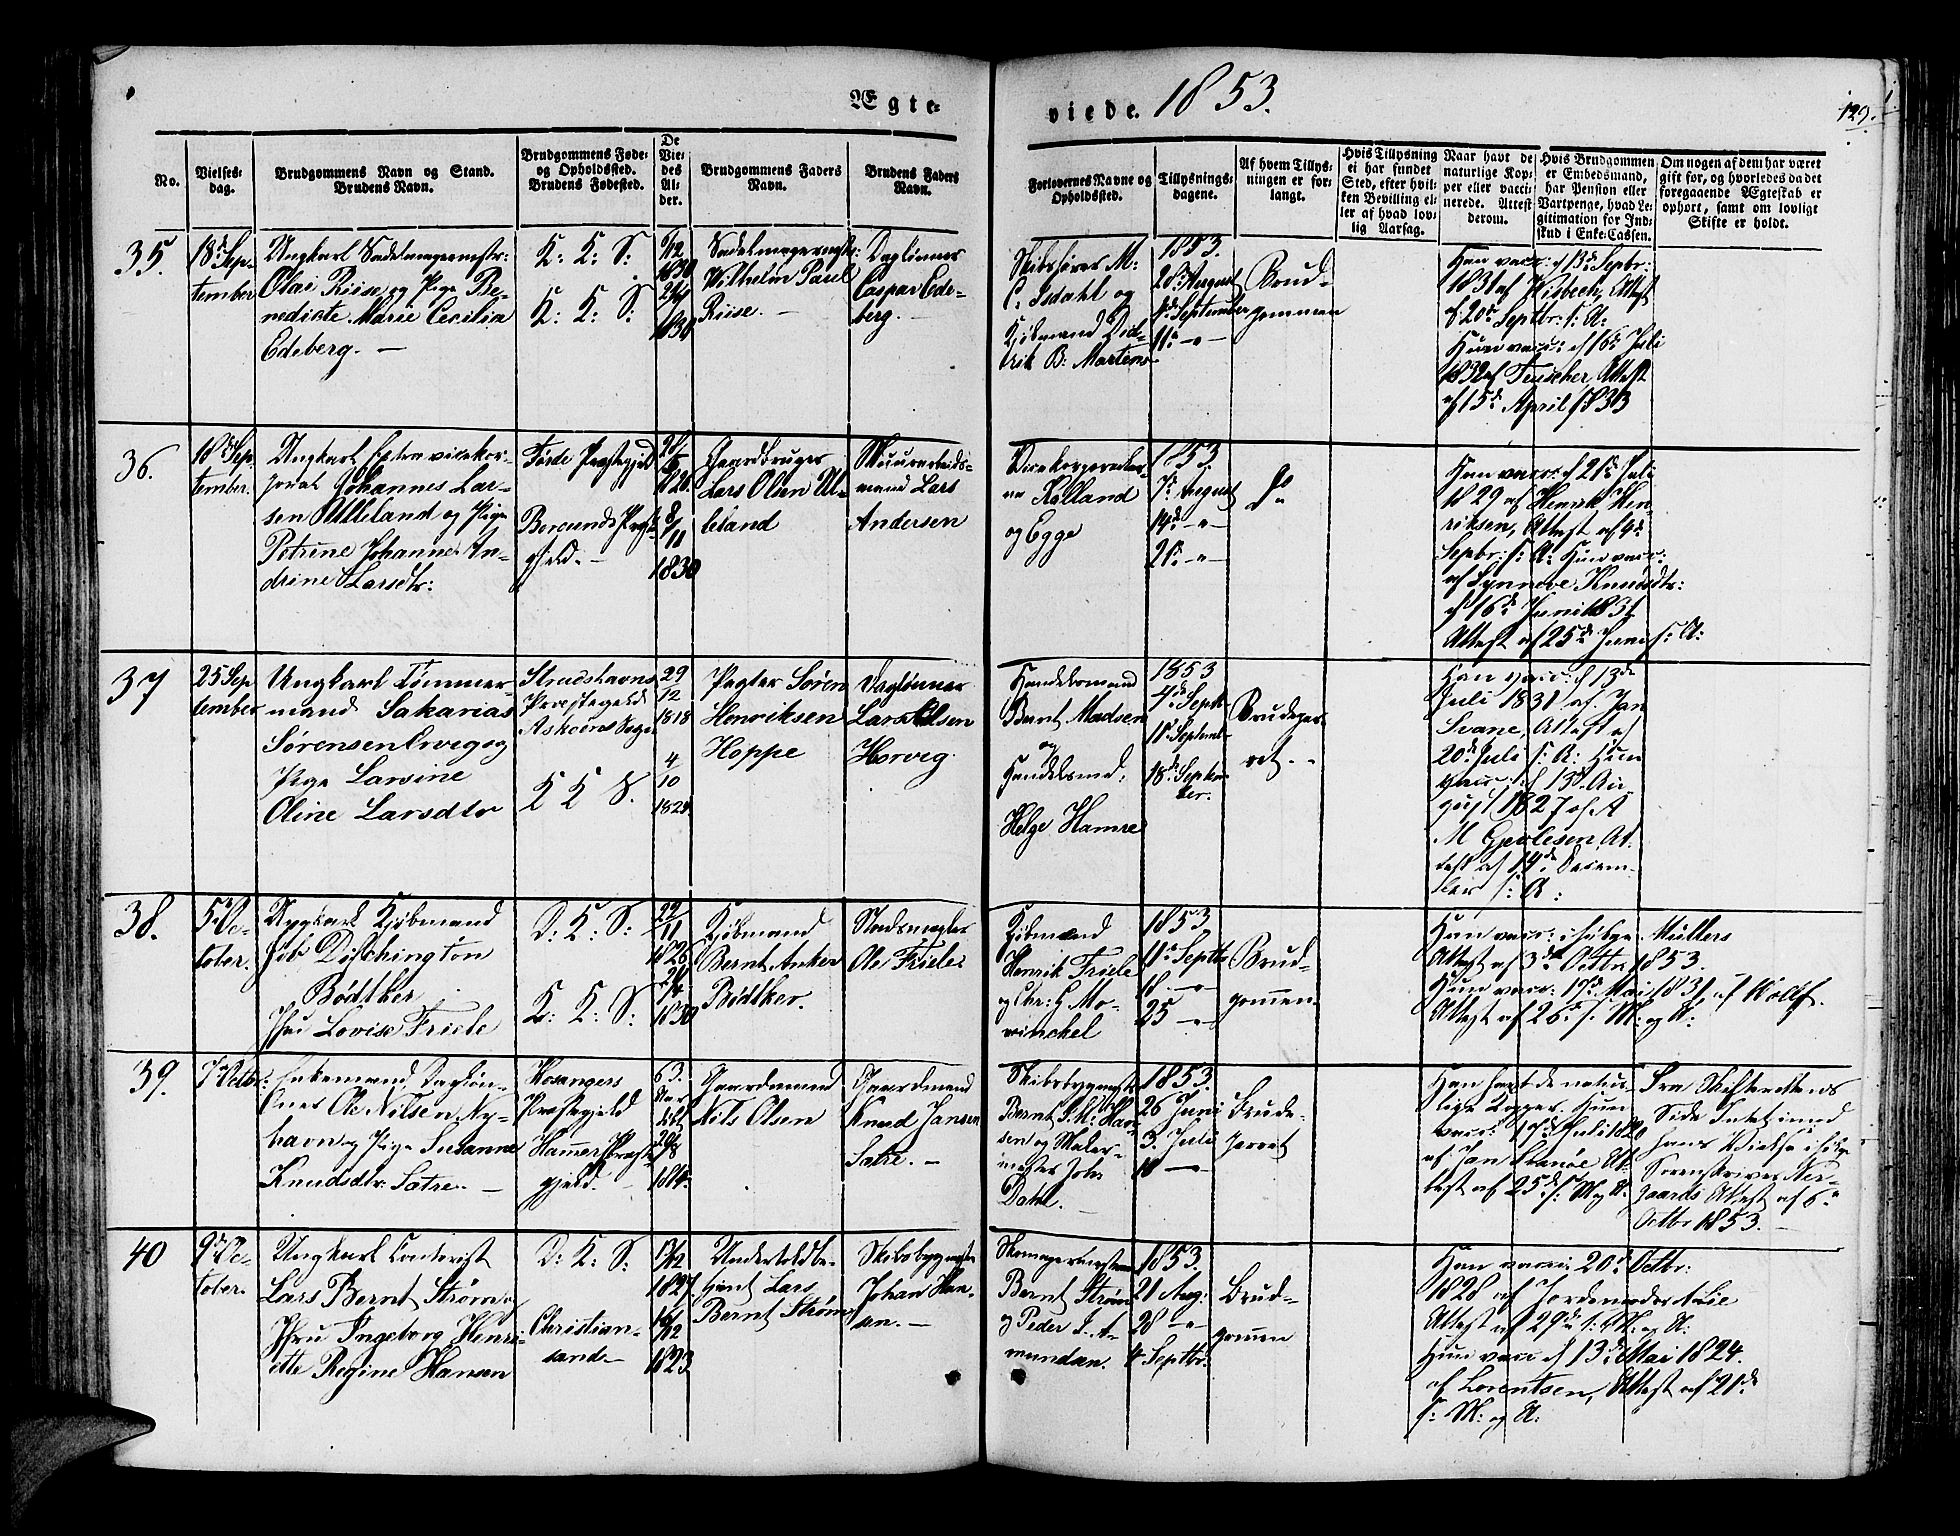 Ægte-
viede. 1853.
129.
No.
Vielses-
dag.
Brudgommens Navn og Stand.
Brudens Navn.
Brudgommens Føde-
og Opholdssted.
Brudens Fødested.
De
Vie-
des
Al-
der.
Brudgommens Faders
Navn.
Brudens Faders
Navn.
Forlovernes Navne og
Opholdssted.
Tillysnings-
dagene.
Af hvem Tillys-
ningen er for-
langt.
Hvis Tillysning
ei har fundet
Sted, efter hvil-
ken Bevilling el-
ler af hvad lov-
lig Aarsag.
Naar havt de
naturlige Kop-
per eller vacci-
nerede. Attest
derom.
Hvis Brudgommen
er Embedsmand,
har Pension eller
Vartpenge, hvad Le-
gitimation for Ind-
skud i Enke-Cassen.
Om nogen af dem har været
gift før, og hvorledes da det
foregaaende Ægteskab er
ophørt, samt om lovligt
Skifte er holdt.
35.
18d Sep-
tember
Ungkarl Sadelmagermstr:
Olai Riise og Pige Be-
nedicte Marie Cecilia
Edeberg. —
K: K: S:
K: K: S:
1830
1830
Sadelmagermstr:
Wilhelm Paul
Riise. —
Daglønner
Caspar Ede-
berg. —
Skibsfører M:
C: Isdahl og
Kjøbmand Did-
rik B: Martens
1853.
28d August
4d September
11d — " —
Brud-
gommen
Han vacc: d 13d Septbr:
1831 af Wisbech, Attest
d 20d Septbr: s: A:
Hun vacc: d 16d Juli
1832 af Teuscher, Attest
af 15d April 1833
36.
18d Sep-
tember.
Ungkarl Extra vicekor-
poral Johannes Lar-
sen Ulleland og Pige
Petrine Johanne An-
drine Larsdtr:
Førde Præstegjeld
Borgunds Præste-
gjeld. —
1826
8/11
1830
Gaardbruger
Lars Olsen Ul-
leland
Muurarbeids-
mand Lars
Andersen
Vicekorporalerne
Rolland
og Egge
1853.
7d August
14d — " —
21d — " —
do
Han vacc: d 21d Juli
1829 af Henrik Hen-
riksen, Attest af 4d
Septbr: s: A: Hun vacc:
af Synneve Knudsdtr:
d 16d Juni 1831
Attest af 25d Juni s: A:
37
25 Sep
tember
Ungkarl Tømmer-
mand Sakarias
Sørensen Orveg og
Pige Larsine
Oline Larsdtr
Strudshavns
Præstegeld
Askøens Sogn
K K S.
29/12
1818
4/10
1824.
Pagter Søren
Henriksen
Hoppe
Daglønner
Lars Olsen
Horveg.
Handelsmand
Bernt Madsen
og
Handelsmd.
Helge Hamre
1853
4d Septb
11d Septemb-
18d Septem-
ber.
Brudepar-
ret. - -
Han vacc: d 13d
Juli 1831 af Jan
Svane, Attest af
20d Juli s: A: Hun
vacc: d 13d Au-
gust 1827 af A
M Gjerlesen At-
test af 14d Decem-
ber s: A:
38.
5d Oc-
tober.
Ungkarl Kjøbmand
Job Dischington
Bødtker
Jfru Lovise Friele
D: K: S:
K: K: S:
22/11
1826
1830
Kjøbmand
Bernt Anker
Bødtker.
Stadsmægler
Ole Friele
Kjøbmænd
Henrik Friele
og Chr: G Mo-
winckel
1853
11d Septbr
18 — " —
25 — " —
Brud-
gommen.
Han vacc: ifølge Müllers
Attest af 3d Octbr 1853.
Hun vacc: 17d Mai 1831 af Rolf.
Attest af 26d s: M: og A:
39.
7d Octbr:
Enkemand Dagløn-
ner Ole Nilsen Ny-
havn og Pige Susanne
Knudsdtr: Satre. —
Hosangers
Præstegjeld
Hammer Præste-
gjeld. —
63.
Aar
1814.
Gaardmand
Nils Olsen
Gaardmand
Knud Jansen
Satre. —
Skibsbygmstr
Bernt S. M: Han-
sen og Maler-
mester Joh:
Dahl. —
1853.
26 Juni
3. Juli
10 — " —
Brude-
parret
Han havt de natur-
lige Kopper. Hun
vacc: 17d Juli 1820
af Jan Stanøe At-
test af 25d s: M og A:
Fra Skifterettens
Side Intet imod
hans Vielse ifølge
Sorenskriver Ner-
gaards Attest af 6d
Octbr 1853. —
40
9d Oc-
tober.
Ungkarl Contorist
Lars Bernt Strøm og
Jfru Ingeborg Henri-
ette Regine Hansen
D: K: S:
Christian-
sand. —
1827.
16/12
1823
Undertoldbe-
tjent Lars
Bernt Strøm
Skibsbygmester
Johan Han-
sen. —
Skomagermester
Bernt Strøm
og Peder J. A-
mundsen.
1853.
21 Aug:
28 — " —
4 Septbr:
Brud-
gommen
Han vacc: 20d Octbr:
1828 af Jordemoder Moe
Attest af 29d s: M: og A:
Hun vacc d 13d Mai 1824.
af Lorentsen, Attest af 21d
s: M: og A: